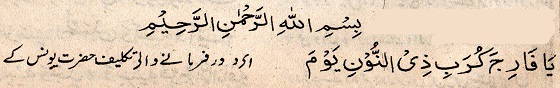 بِسْمِ اللهِ الرَّحْمٰنِ الرَّحِیْمِ
یَا فَارِجَ کُرَبِ ذِی النُّوْنِ یَوْمَ اے دور فرمانے والی تکلیف حضرت یونس کے